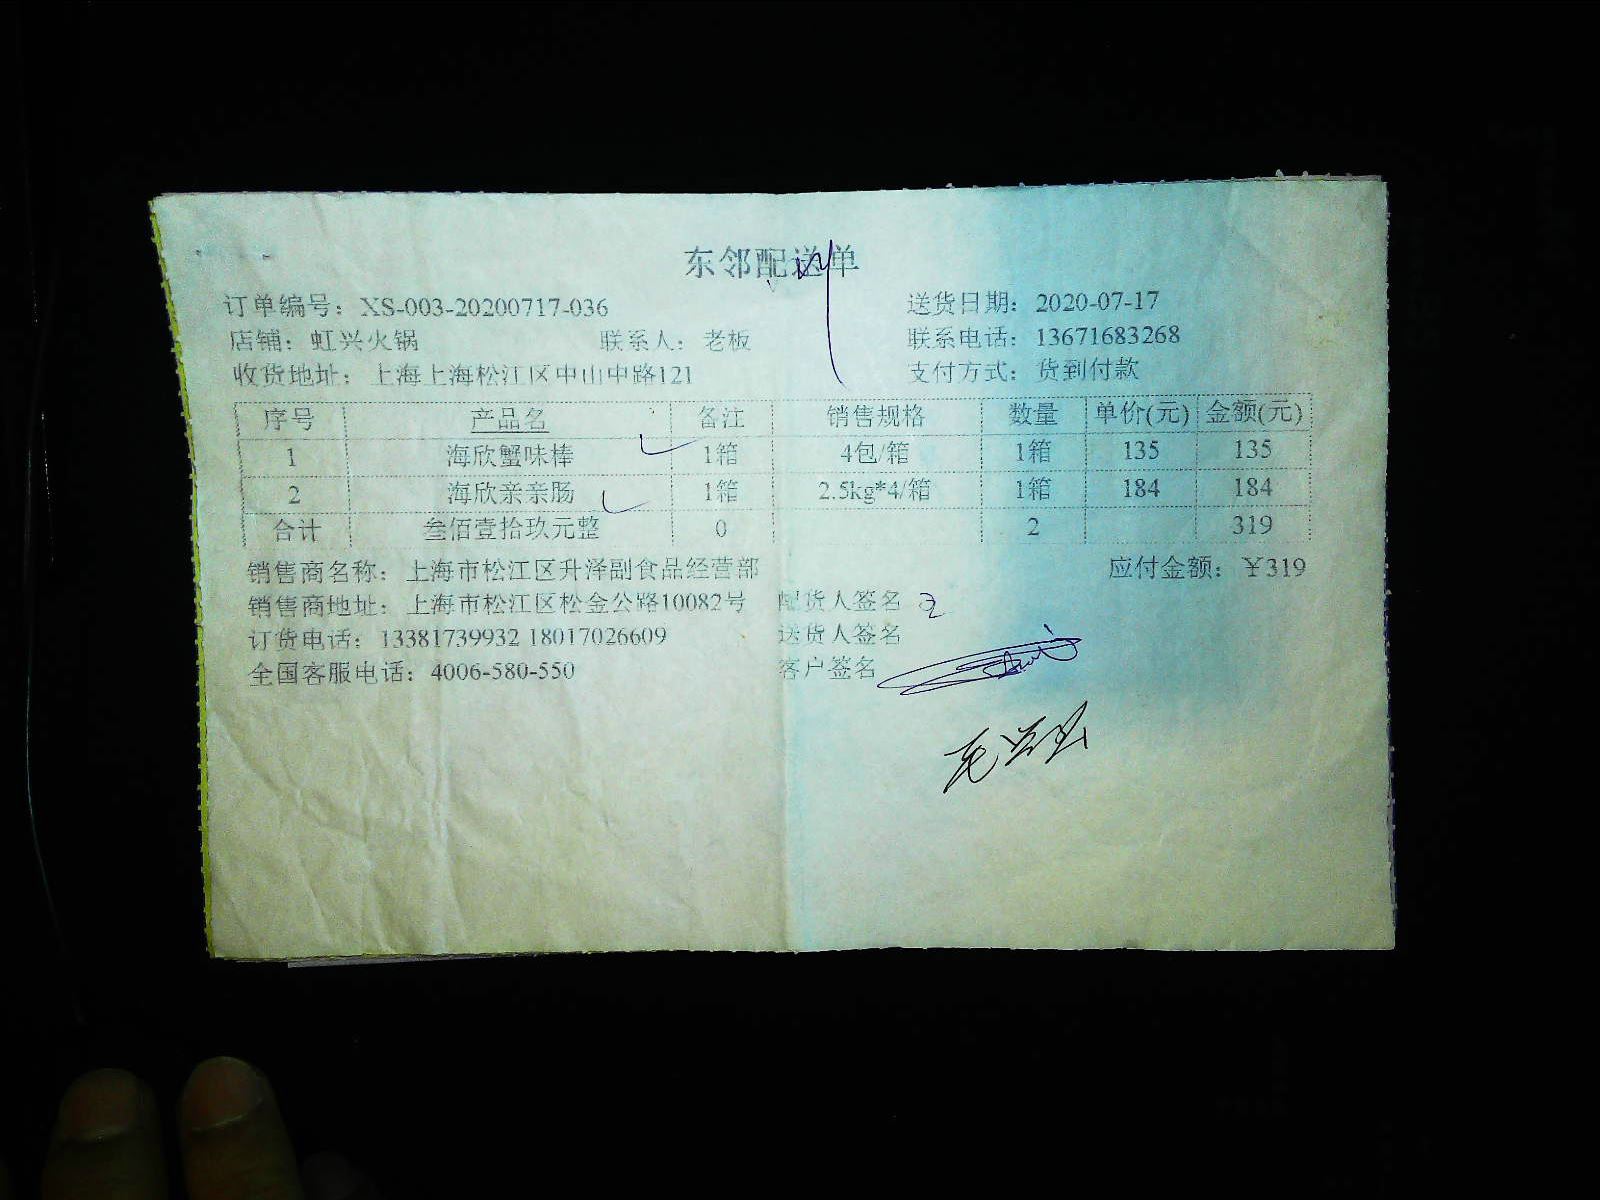 东邻配送单
订单编号：XS-003-20200717-036 送货日期：2020-07-17
店铺：虹兴火锅 联系人：老板 联系电话：13671683268
收货地址：上海上海松江区中山中路121 支付方式：货到付款
序号 产品名 备注 销售规格 数量 单价(元) 金额(元)
1 海欣蟹味棒 1箱 4包/箱 1箱 135 135
2 海欣亲亲肠 1箱 2.5kg*4/箱 1箱 184 184
合计 叁佰壹拾玖元整 0 2 319
销售商名称：上海市松江区升泽副食品经营部 应付金额：￥319
销售商地址：上海市松江区松金公路10082号 配货人签名
订货电话：13381739932 18017026609 送货人签名
全国客服电话：4006-580-550 客户签名